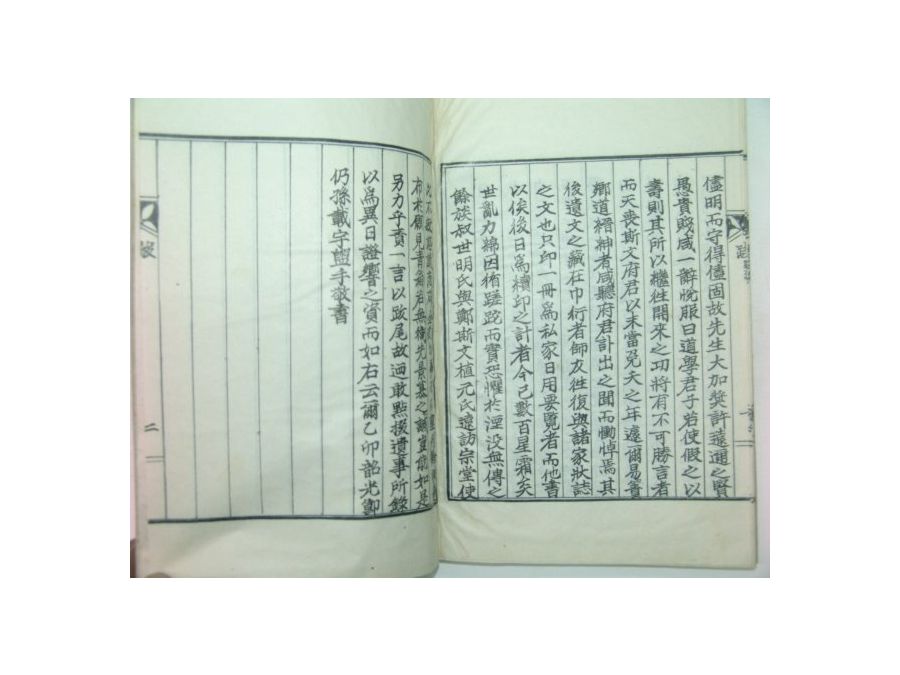 儘明而守得儘固故先生大加奬許遠邇之賢
愚貴賤咸一辭悅服曰道學君子若使假之以
壽則其所以繼往開來之功將有不可勝言者
而天喪斯文府君以未當兗夭之年遽爾易簀
鄉道縉紳者咸聽府君訃出之聞而慟悼焉其
後遺文之藏在巾衍者師友往復與諸家狀誌
之文也只印一冊爲私家日用要覽者而他書
以俟後日爲續印之計者今已數百星霜矣
世亂力綿因循蹉跎而實恐懼於湮没無傳之
餘族叔世明氏與鄭斯文植元氏遠訪宗堂使
布於願見者倘若無擔先景慕之誠豈能如是
另力乎責一言以跋尾故迺敢點掇遺事所錄
以爲異日證嚮之資而如右云爾乙卯韶光節
仍孫載字盥手敬書
跋
二